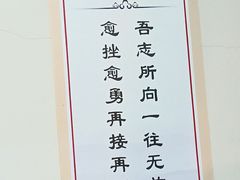 吾志所向一往无
愈挫愈勇再接再